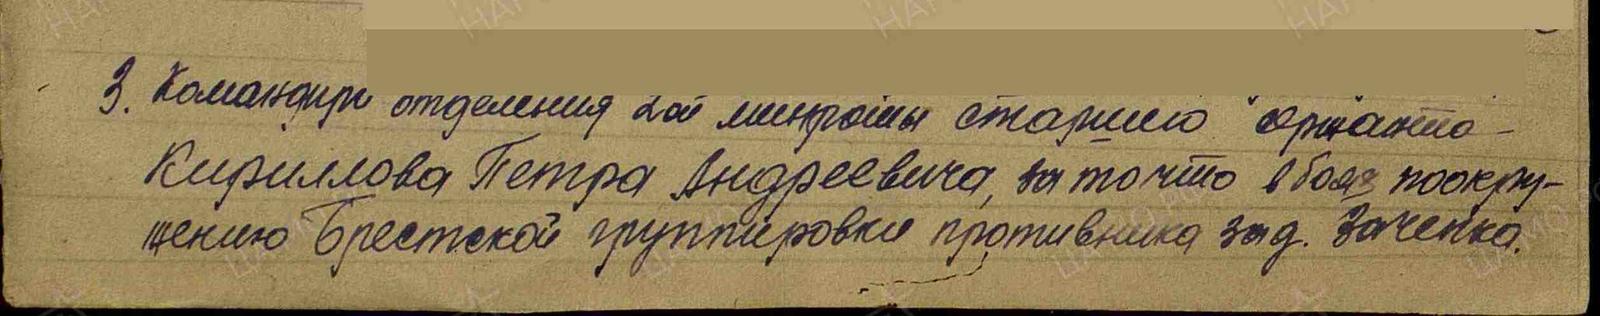 3. Командира отделения 2ой минроты старшего сержанта
Кириллова Петра Андреевича, за то что в боях поокру-
жению Брестской группировки противника за д. Зачепка.